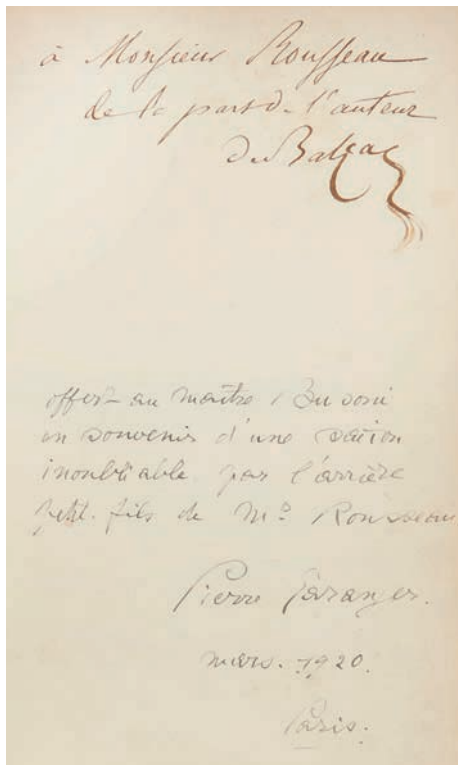 à Monsieur Rousseau
de la part de l'auteur
De Balzac
offert au maître Busoni
en souvenir d'une
inoubliable par l'arrière
petit-fils de Mr Rousseau
Pierre Garanger.
mars. 1920.
Paris.